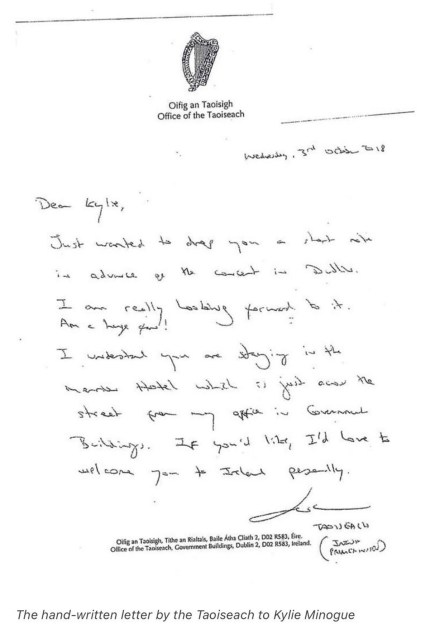 Oifig an Taoisigh
Office of the Taoiseach
Wednesday, 3rd October 2018
Dear Kylie,
Just wanted to drop you a short note
in advance of the concert in Dublin.
I am really looking forward to it.
Am a huge fan!
I understand you are staying in the
Merrion Hotel which is just across the
street from my office in Government
Buildings. If you'd like, I'd love to
welcome you to Ireland personally.
TAOISEACH
(IRISH
PRIME MINISTER)
Oifig an Taoisigh, Tithe an Rialtais, Baile Átha Cliath 2, D02 R583, Éire.
Office of the Taoiseach, Government Buildings, Dublin 2, D02 R583, Ireland.
The hand-written letter by the Taoiseach to Kylie Minogue